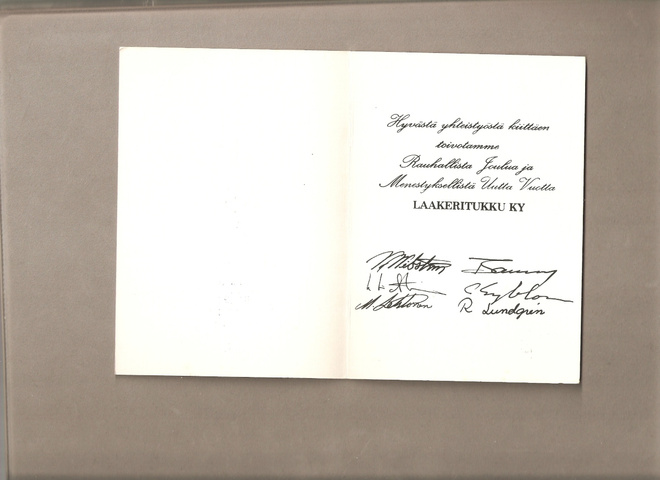 Hyvästä yhteistyöstä kiittäen
toivotamme
Rauhallista Joulua ja
Menestyksellistä Uutta Vuotta
LAAKERITUKKU KY
R Lundgren